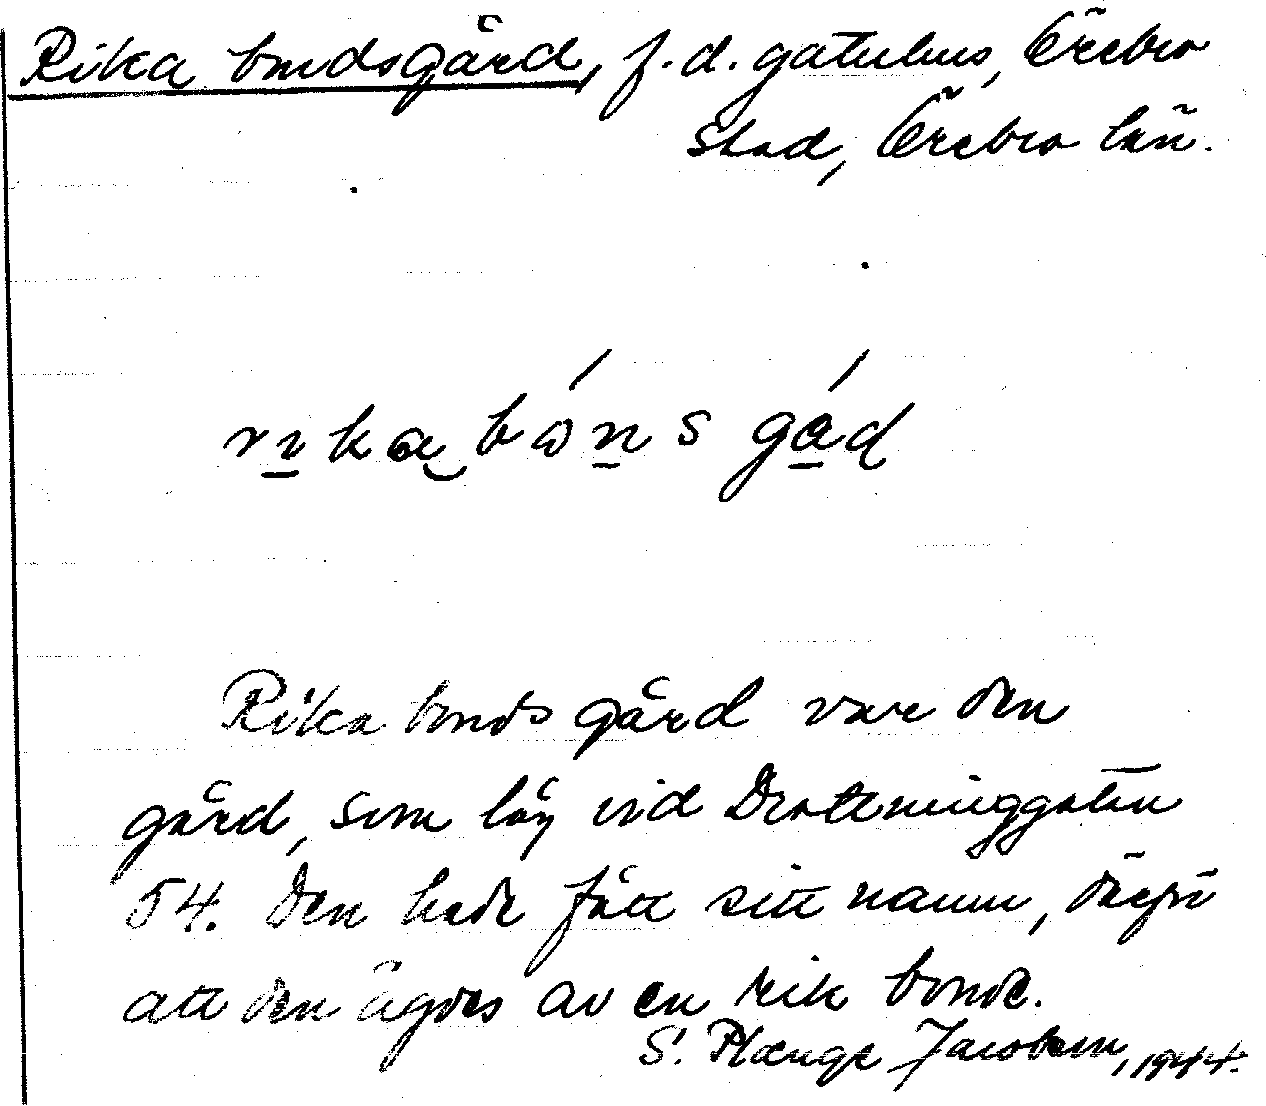 Rika bondsgård, f.d. gatuhus, Örebro
stad, Örebro län.
rikabónsgád
Rika bonds gård var den
gård, som låg vid Drottninggatan
54. Den hade fått sitt namn, därför
att den ägdes av en rik bonde.
S. Plænge Jacobson, 1944.